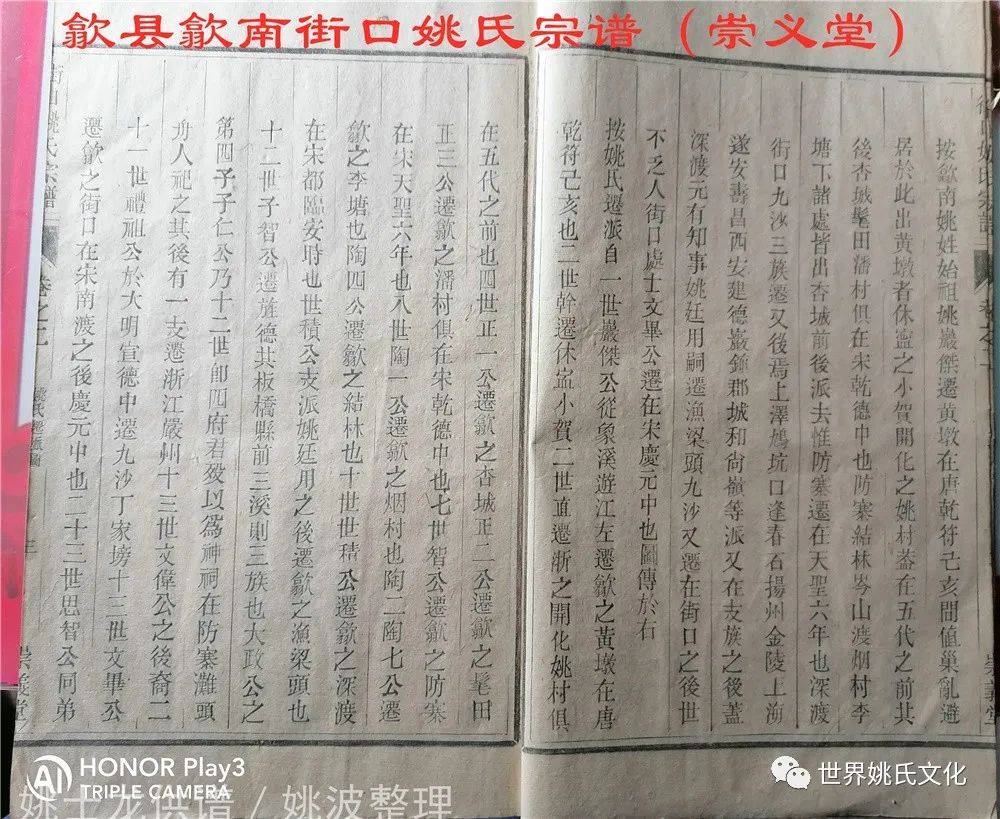 歙县歙南街口姚氏宗谱（崇义堂）
按歙南姚姓始祖姚巖傑遷黄墩在唐乾符己亥間値巢亂避
居於此出黄墩者休寧之小賀開化之姚村葢在五代之前其
後杏城髦田潘村俱在宋乾德中也防寨結林岑山渡烟村李
塘下諸處皆出杏城前後派去惟防寨遷在天聖六年也深渡
街口九沙三族遷又後焉上澤鳩坑口逢春石揚州金陵上海
遂安壽昌西安建德巖鎭郡城和尙嶺等派又在支族之後葢
深渡元有知事姚廷用嗣遷漁梁頭九沙又遷在街口之後世
不乏人街口處士文畢公遷在宋慶元中也圖傳於右
按姚氏遷派自一世巖傑公從象溪遊江左遷歙之黄墩在唐
乾符己亥也二世幹遷休寍小賀二世直遷浙之開化姚村俱
在五代之前也四世正一公遷歙之杏城正二公遷歙之髦田
正三公遷歙之潘村俱在宋乾德中也七世智公遷歙之防寨
在宋天聖六年也入世陶一公遷歙之烟村也陶二陶七公遷
歙之李塘也陶四公遷歙之結林也十世世積公遷歙之深渡
在宋都臨安時也世積公支派姚廷用之後遷歙之漁梁頭也
十二世子智公遷旌德其板橋縣前三溪則三族也大政公之
第四子子仁公乃十二世郎四府君歿以爲神祠在防寨灘頭
舟人祀之其後有一支遷浙江嚴州十三世文偉公之後裔二
十一世禮祖公於大明宣德中遷九沙丁家塝十三世文畢公
遷歙之街口在宋南渡之後慶元中也二十三世思智公同弟
氏宗譜
三
崇義堂
HONOR Play3
TRIPLE CAMERA
姚士龙供谱 / 姚波整理
世界姚氏文化